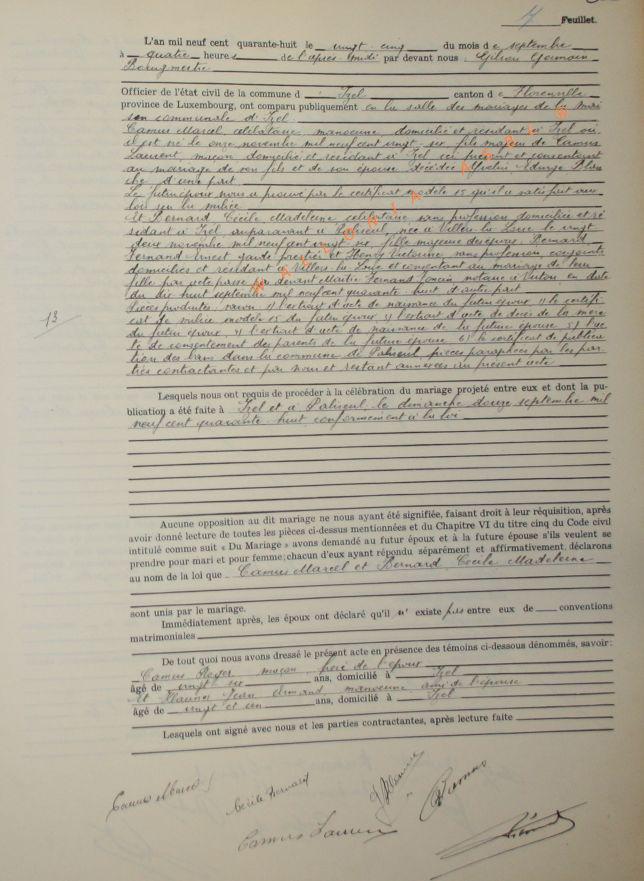 Feuillet.
L'an mil neuf cent quarante-huit le vingt cinq du mois de septembre
à quatre heures de l'après-midi par devant nous Germain
Officier de l'état civil de la commune d' Izel canton de Florenville
province de Luxembourg, ont comparu publiquement en la salle des mariages de la mai
son communale d'Izel
Camus Marcel, célibataire manoeuvre domicilié et résidant à Izel où
il est né le onze novembre mil neuf cent vingt six fils majeur de Camus
Laurent, maçon domicilié et résidant à Izel ici présent et consentant
au mariage de son fils et de son épouse décédée
che d'une part
Le futur époux nous a prouvé par le certificat modèle 15 qu'il a satisfait aux
lois sur la milice
Et Bernard Cécile Madeleine célibataire sans profession domiciliée et ré
sidant à Izel auparavant à Paliseul, née à Villers la Loue le vingt
deux novembre mil neuf cent vingt six fille majeure des époux Bernard
Fernand Ernest garde et Henry Victorine, sans profession conjoints
domiciliés et résidant à Villers la Loue et consentant au mariage de leur
fille par acte passé par devant Maître Fernand notaire à Virton en date
du dix huit septembre mil neuf cent quarante huit d'autre part
Pièces produites, savoir: 1) l'extrait d'acte de naissance du futur époux 2) le certifi
cat de milice modèle 15 du futur époux 3) l'extrait d'acte de décès de la mère
du futur époux 4) l'extrait d'acte de naissance de la future épouse 5) l'ac
te de consentement des parents de la future épouse 6) le certificat de publica
tion des bans dans la commune de Paliseul, pièces paraphées par les par
ties contractantes et par nous et restant annexées au présent acte
13
Lesquels nous ont requis de procéder à la célébration du mariage projeté entre eux et dont la pu-
blication a été faite à Izel et à Paliseul le dimanche douze septembre mil
neuf cent quarante-huit conformément à la loi
Aucune opposition au dit mariage ne nous ayant été signifiée, faisant droit à leur réquisition, après
avoir donné lecture de toutes les pièces ci-dessus mentionnées et du Chapitre VI du titre cinq du Code civil
intitulé comme suit « Du Mariage » avons demandé au futur époux et à la future épouse s'ils veulent se
prendre pour mari et pour femme; chacun d'eux ayant répondu séparément et affirmativement, déclarons
au nom de la loi que Camus Marcel et Bernard Cécile Madeleine
sont unis par le mariage.
Immédiatement après, les époux ont déclaré qu'il n' existe pas entre eux de conventions
matrimoniales
De tout quoi nous avons dressé le présent acte en présence des témoins ci-dessous dénommés, savoir:
Camus Roger maçon frère de l'époux
âgé de vingt six ans, domicilié à Izel
et Jean Armand, manoeuvre ami de l'épouse
âgé de vingt et un ans, domicilié à Izel
Lesquels ont signé avec nous et les parties contractantes, après lecture faite
Camus Marcel
Cécile Bernard
Camus
Camus Laurent